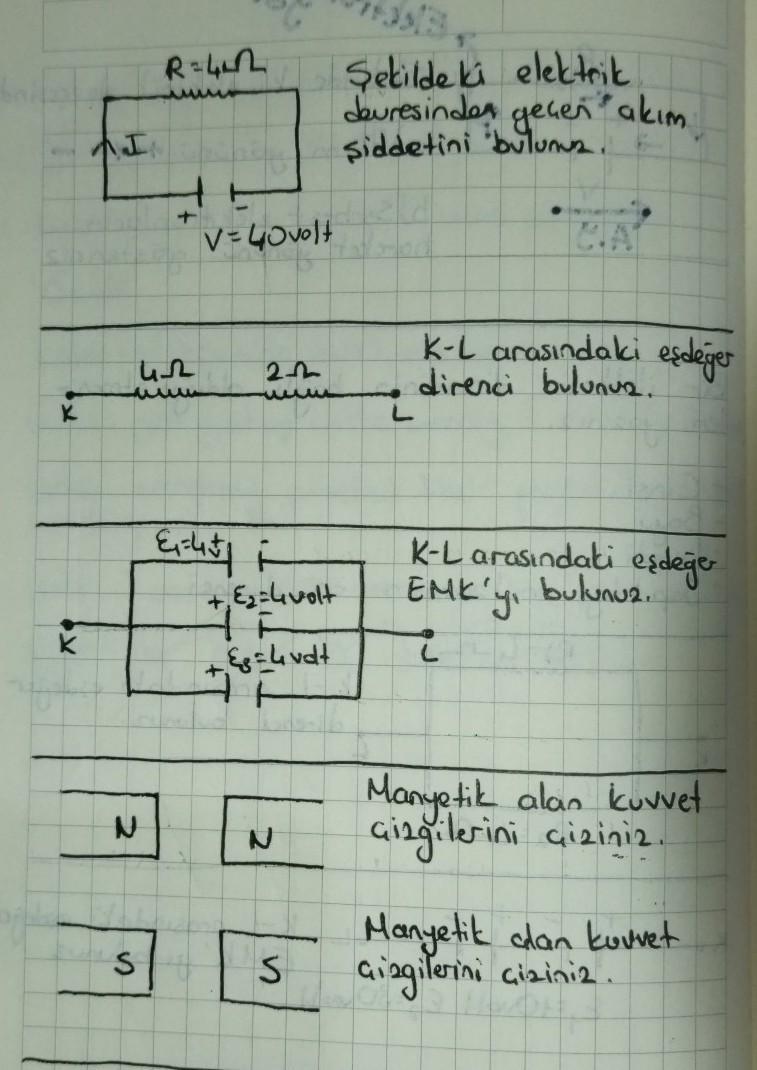 R=4Ω
Şekildeki elektrik
devresinden geçen akım
şiddetini bulunuz.
I
+ -
V=40volt
4Ω 2Ω
K L
K-L arasındaki eşdeğer
direnci bulunuz.
+ -
+ ε2=4volt
-
ε3=4volt
+ -
K L
K-L arasındaki eşdeğer
EMK'yı bulunuz.
N N
Manyetik alan kuvvet
çizgilerini çiziniz.
S S
Manyetik alan kuvvet
çizgilerini çiziniz.